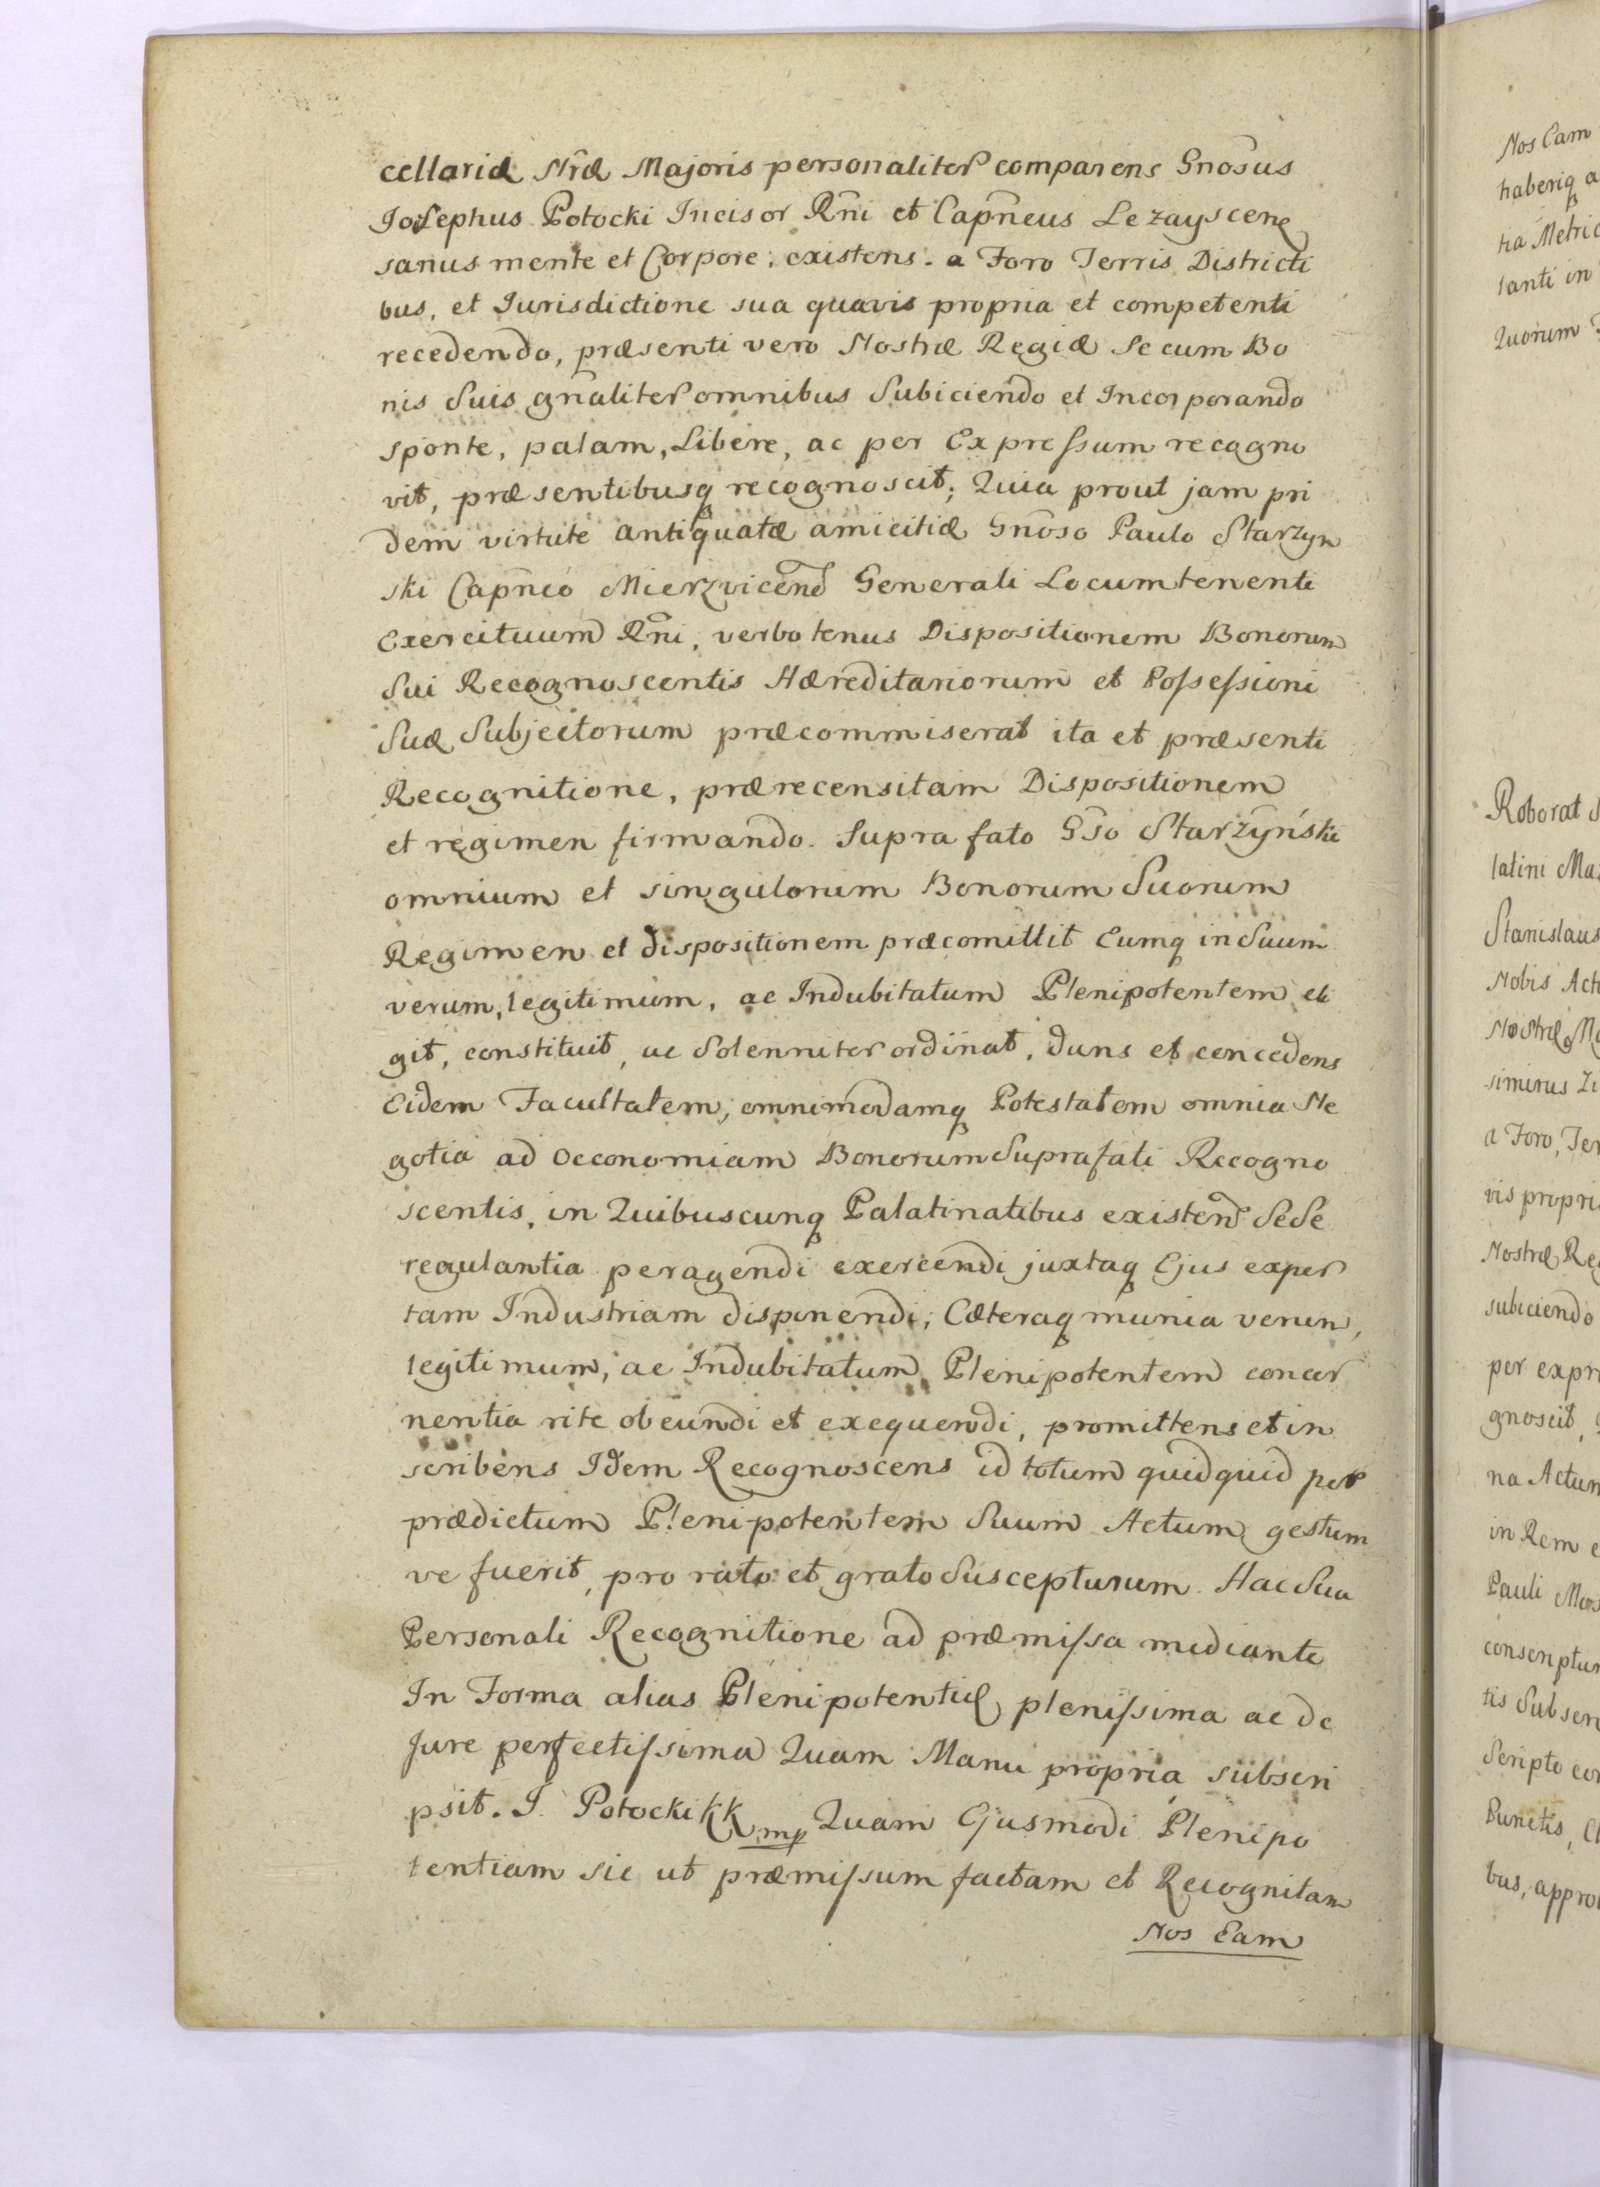 cellariæ Nr̃æ Majoris personaliter comparens Gnosus
Josephus Potocki Incisor Rñi et Capñeus Lezayscen
sanus mente et Corpore existens. a Foro Terris Districti
bus, et Jurisdictione sua quavis propria et competenti
recedendo, præsenti vero Nostræ Regiæ Se cum Bo
nis Suis gñaliter omnibus Subiciendo et Incorporando
sponte, palam, Libere, ac per Expressum recogno
vit, præsentibusq recognoscit; Quia prout jam pri
dem virtute antiquatæ amicitiæ Gnoso Paulo Starzyn
ski Capñeo Mierzvicen Generali Locumtenenti
Exercituum Rñi, verbotenus Dispositionem Bonorum
Sui Recognoscentis Hæreditariorum et Possessioni
Suæ Subjectorum præcommiserat ita et præsenti
Recognitione, prærecensitam Dispositionem
et regimen firmando. Supra fato Gso Starzyński
omnium et singulorum Bonorum Suorum
Regimen et dispositionem præcomittit Eumq in Suum
verum, legitimum, ac Indubitatum Plenipotentem eli
git, constituit, ac Solenniter ordinat, dans et concedens
Eidem Facultatem, omnimodamq Potestatem omnia Ne
gotia ad Oeconomiam Bonorum Suprafati Recogno
scentis, in Quibuscunq Palatinatibus existen Sese
regulantia peragendi exercendi juxtaq Ejus exper
tam Industriam disponendi; Cæteraq munia verum,
legitimum, ac Indubitatum Plenipotentem concer
nentia rite obeundi et exequendi, promittens et in
scribens Idem Recognoscens id totum quidquid per
prædictum Plenipotentem Suum Actum gestum
ve fuerit, pro rato et grato Suscepturum. Hac Sua
Personali Recognitione ad præmissa mediante
In Forma alias Plenipotentiæ plenissima ac de
Jure perfectissima Quam Manu propria subscri
psit. J. Potocki KK mp Quam Ejusmodi Plenipo
tentiam sic ut præmissum factam et Recognitam
Nos Eam
Nos Eam
haberiq
tia Metric
santi in
Quorum
Roborat
latini Maz
Stanislaus
Nobis Act
Nostræ
simirus
a Foro, Ter
vis propri
Nostræ Reg
subiciendo
per expr
gnoscit,
na Actum
in Rem
Pauli
conscriptu
tis Subscri
Scripto
Punctis,
bus, appro